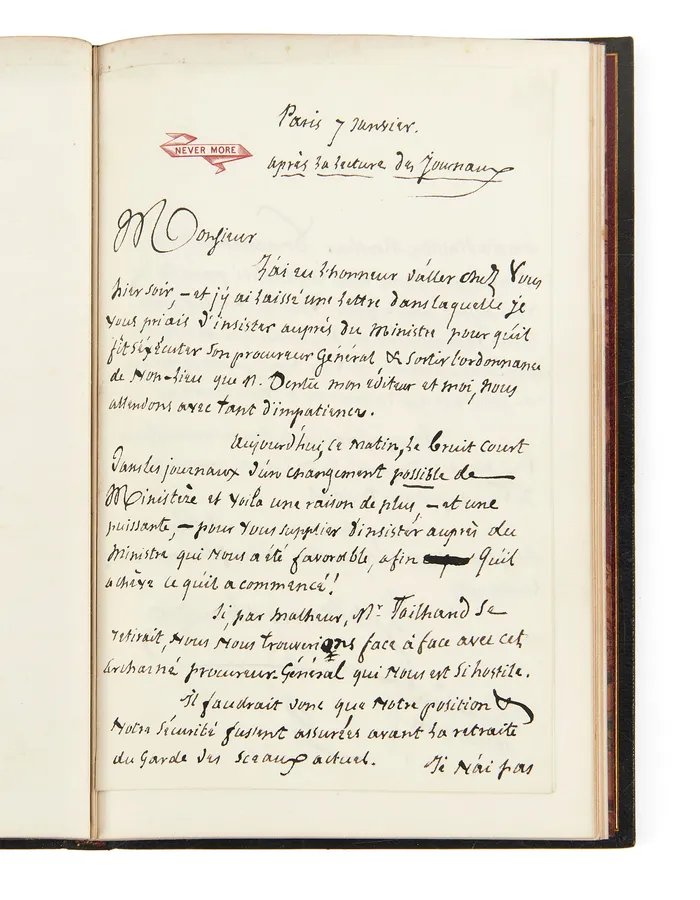 Paris 7 Janvier.
NEVER MORE
après la lecture des Journaux
Monsieur
J'ai eu l'honneur d'aller chez Vous
hier soir, – et j'y ai laissé une lettre dans laquelle je
vous priais d'insister auprès du Ministre pour qu'il
fît exécuter son procureur Général & sortir l'ordonnance
de Non-lieu que M. Dentu mon éditeur et moi, nous
attendons avec tant d'impatience.
Aujourd'hui, ce matin, le bruit court
dans les journaux d'un changement possible de
Ministère et voilà une raison de plus, – et une
puissante, – pour vous supplier d'insister auprès du
Ministre qui nous a été favorable, afin qu'il
achève ce qu'il a commencé!
Si, par malheur, Mr. Tailhand se
retirait, nous nous trouverions face à face avec cet
archarné procureur-Général qui nous est si hostile.
Il faudrait donc que notre position &
notre sécurité fussent assurées avant la retraite
du Garde des Sceaux actuel. Je n'ai pas